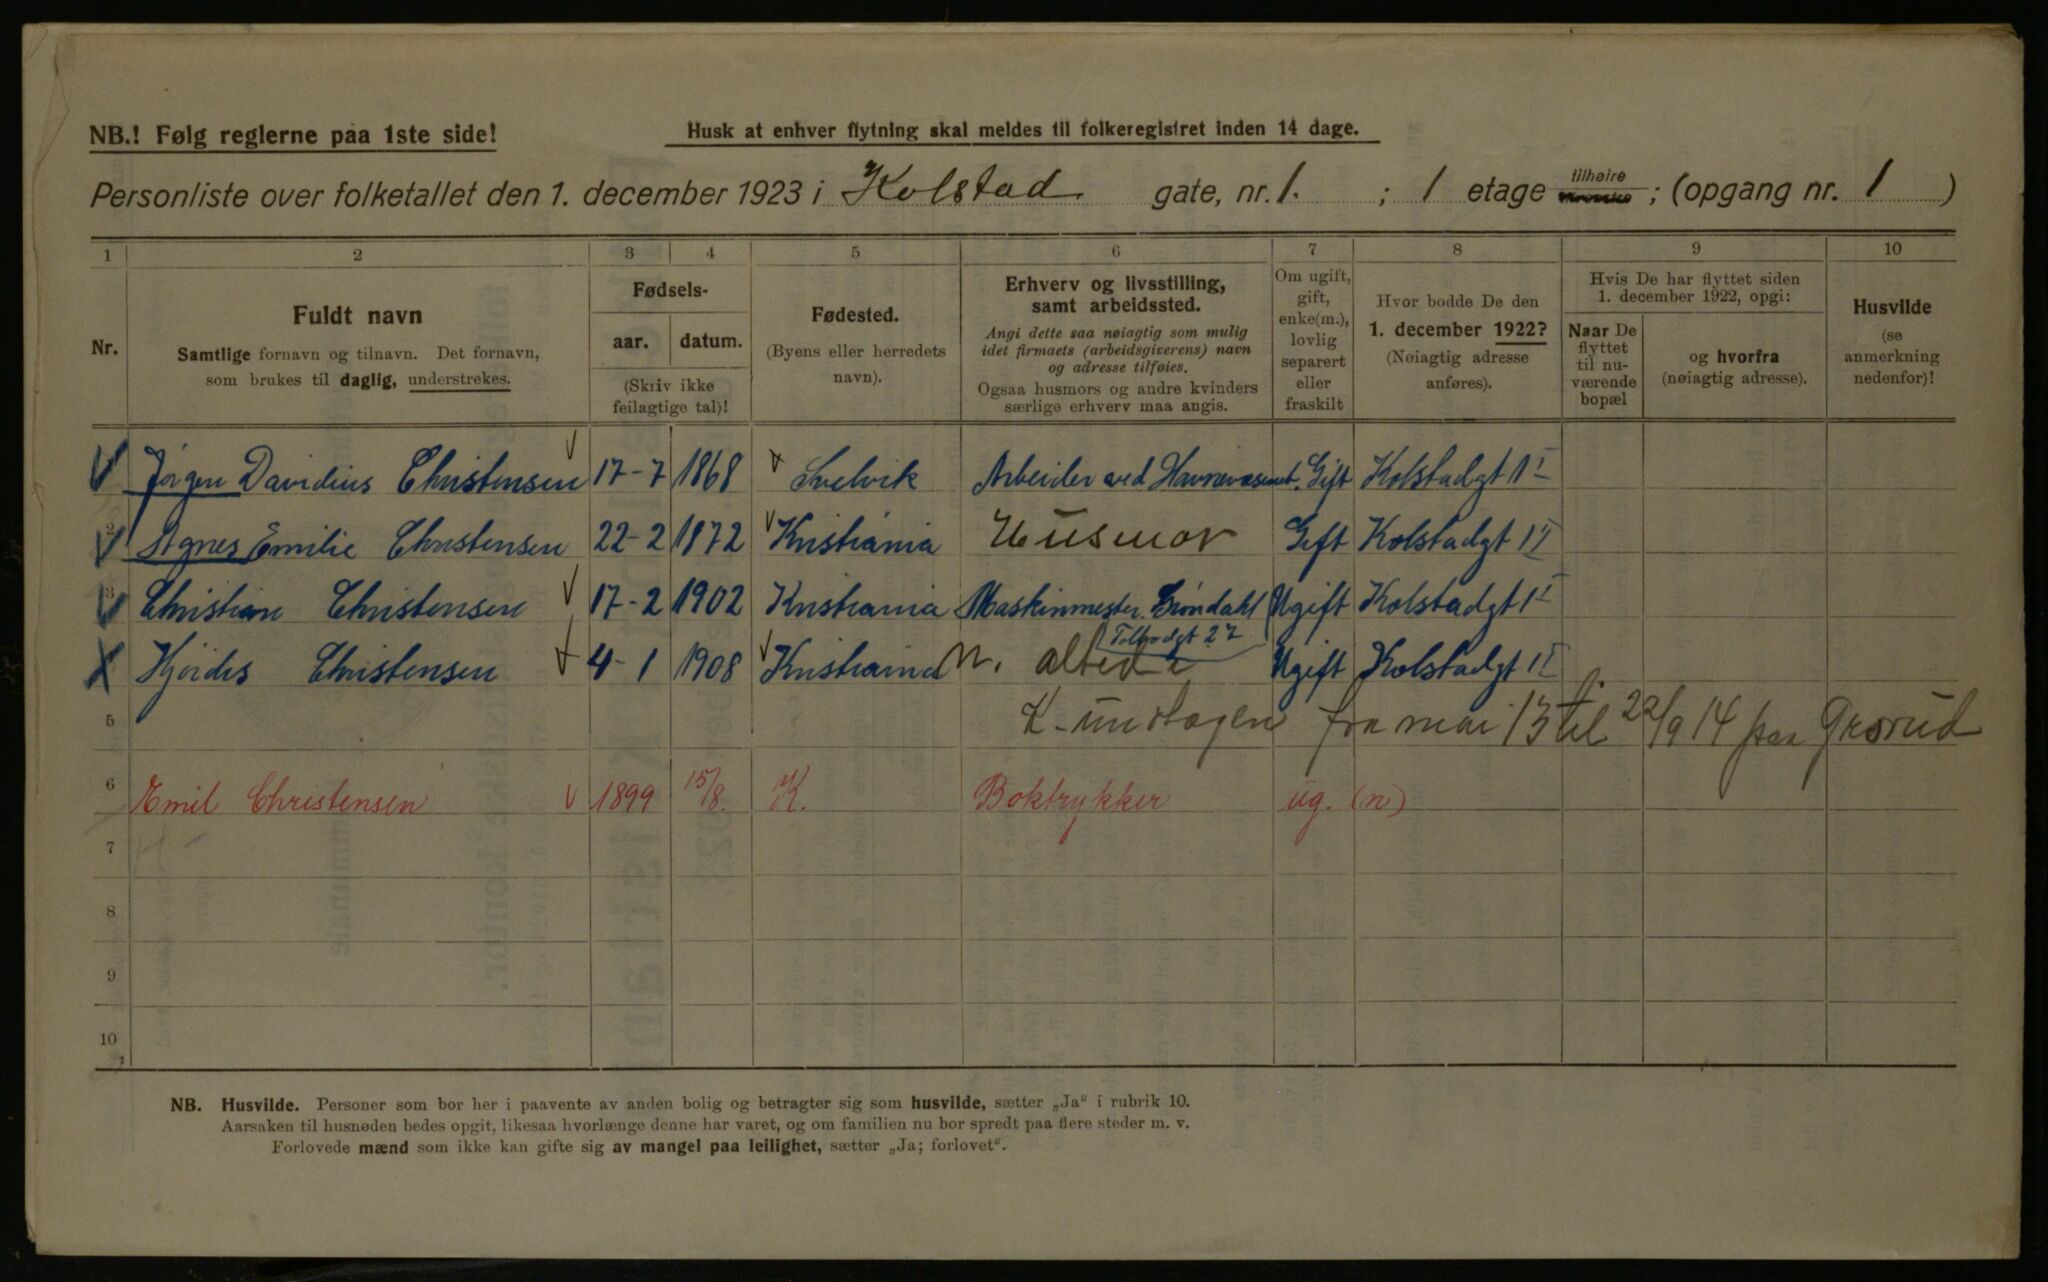 NB.! Følg reglerne paa 1ste side!
Husk at enhver flytning skal meldes til folkeregistret inden 14 dage.
Personliste over folketallet den 1. december 1923 i Kolstad gate, nr. 1. ; 1 etage tilhøire ; (opgang nr. 1 )
1 2 3 4 5 6 7 8 9 10
Nr.
Fuldt navn
Samtlige fornavn og tilnavn. Det fornavn,
som brukes til daglig, understrekes.
Fødsels-
aar. datum.
(Skriv ikke
feilagtige tal)!
Fødested.
(Byens eller herredets
navn).
Erhverv og livsstilling,
samt arbeidssted.
Angi dette saa nøiagtig som mulig
idet firmaets (arbeidsgiverens) navn
og adresse tilføies.
Ogsaa husmors og andre kvinders
særlige erhverv maa angis.
Om ugift,
gift,
enke(m.),
lovlig
separert
eller
fraskilt
Hvor bodde De den
1. december 1922?
(Nøiagtig adresse
anføres).
Hvis De har flyttet siden
1. december 1922, opgi:
Naar De
flyttet
til nu-
værende
bopæl
og hvorfra
(nøiagtig adresse).
Husvilde
(se
anmerkning
nedenfor)!
Jørgen Davidius Christensen 17-7 1868 Svelvik Arbeider ved Havnevæsenet. Gift Kolstadgt 1 I
2 Agnes Emilie Christensen 22-2 1872 Kristiania Husmor Gift Kolstadgt 1 I
3 Christian Christensen 17-2 1902 Kristiania Maskinmester Grøndahl Ugift Kolstadgt 1 I
Tolbodgt 27
Hjördis Christensen 4-1 1908 Kristiania n. altid Ugift Kolstadgt 1 I
5 K - undtagen fra mai 13 til 22/9 14 paa Grorud
6 Emil Christensen 1899 15/8. K. Boktrykker ug. (n)
7
8
9
10
NB. Husvilde. Personer som bor her i paavente av anden bolig og betragter sig som husvilde, sætter „Ja“ i rubrik 10.
Aarsaken til husnøden bedes opgit, likesaa hvorlænge denne har varet, og om familien nu bor spredt paa flere steder m. v.
Forlovede mænd som ikke kan gifte sig av mangel paa leilighet, sætter „Ja; forlovet“.